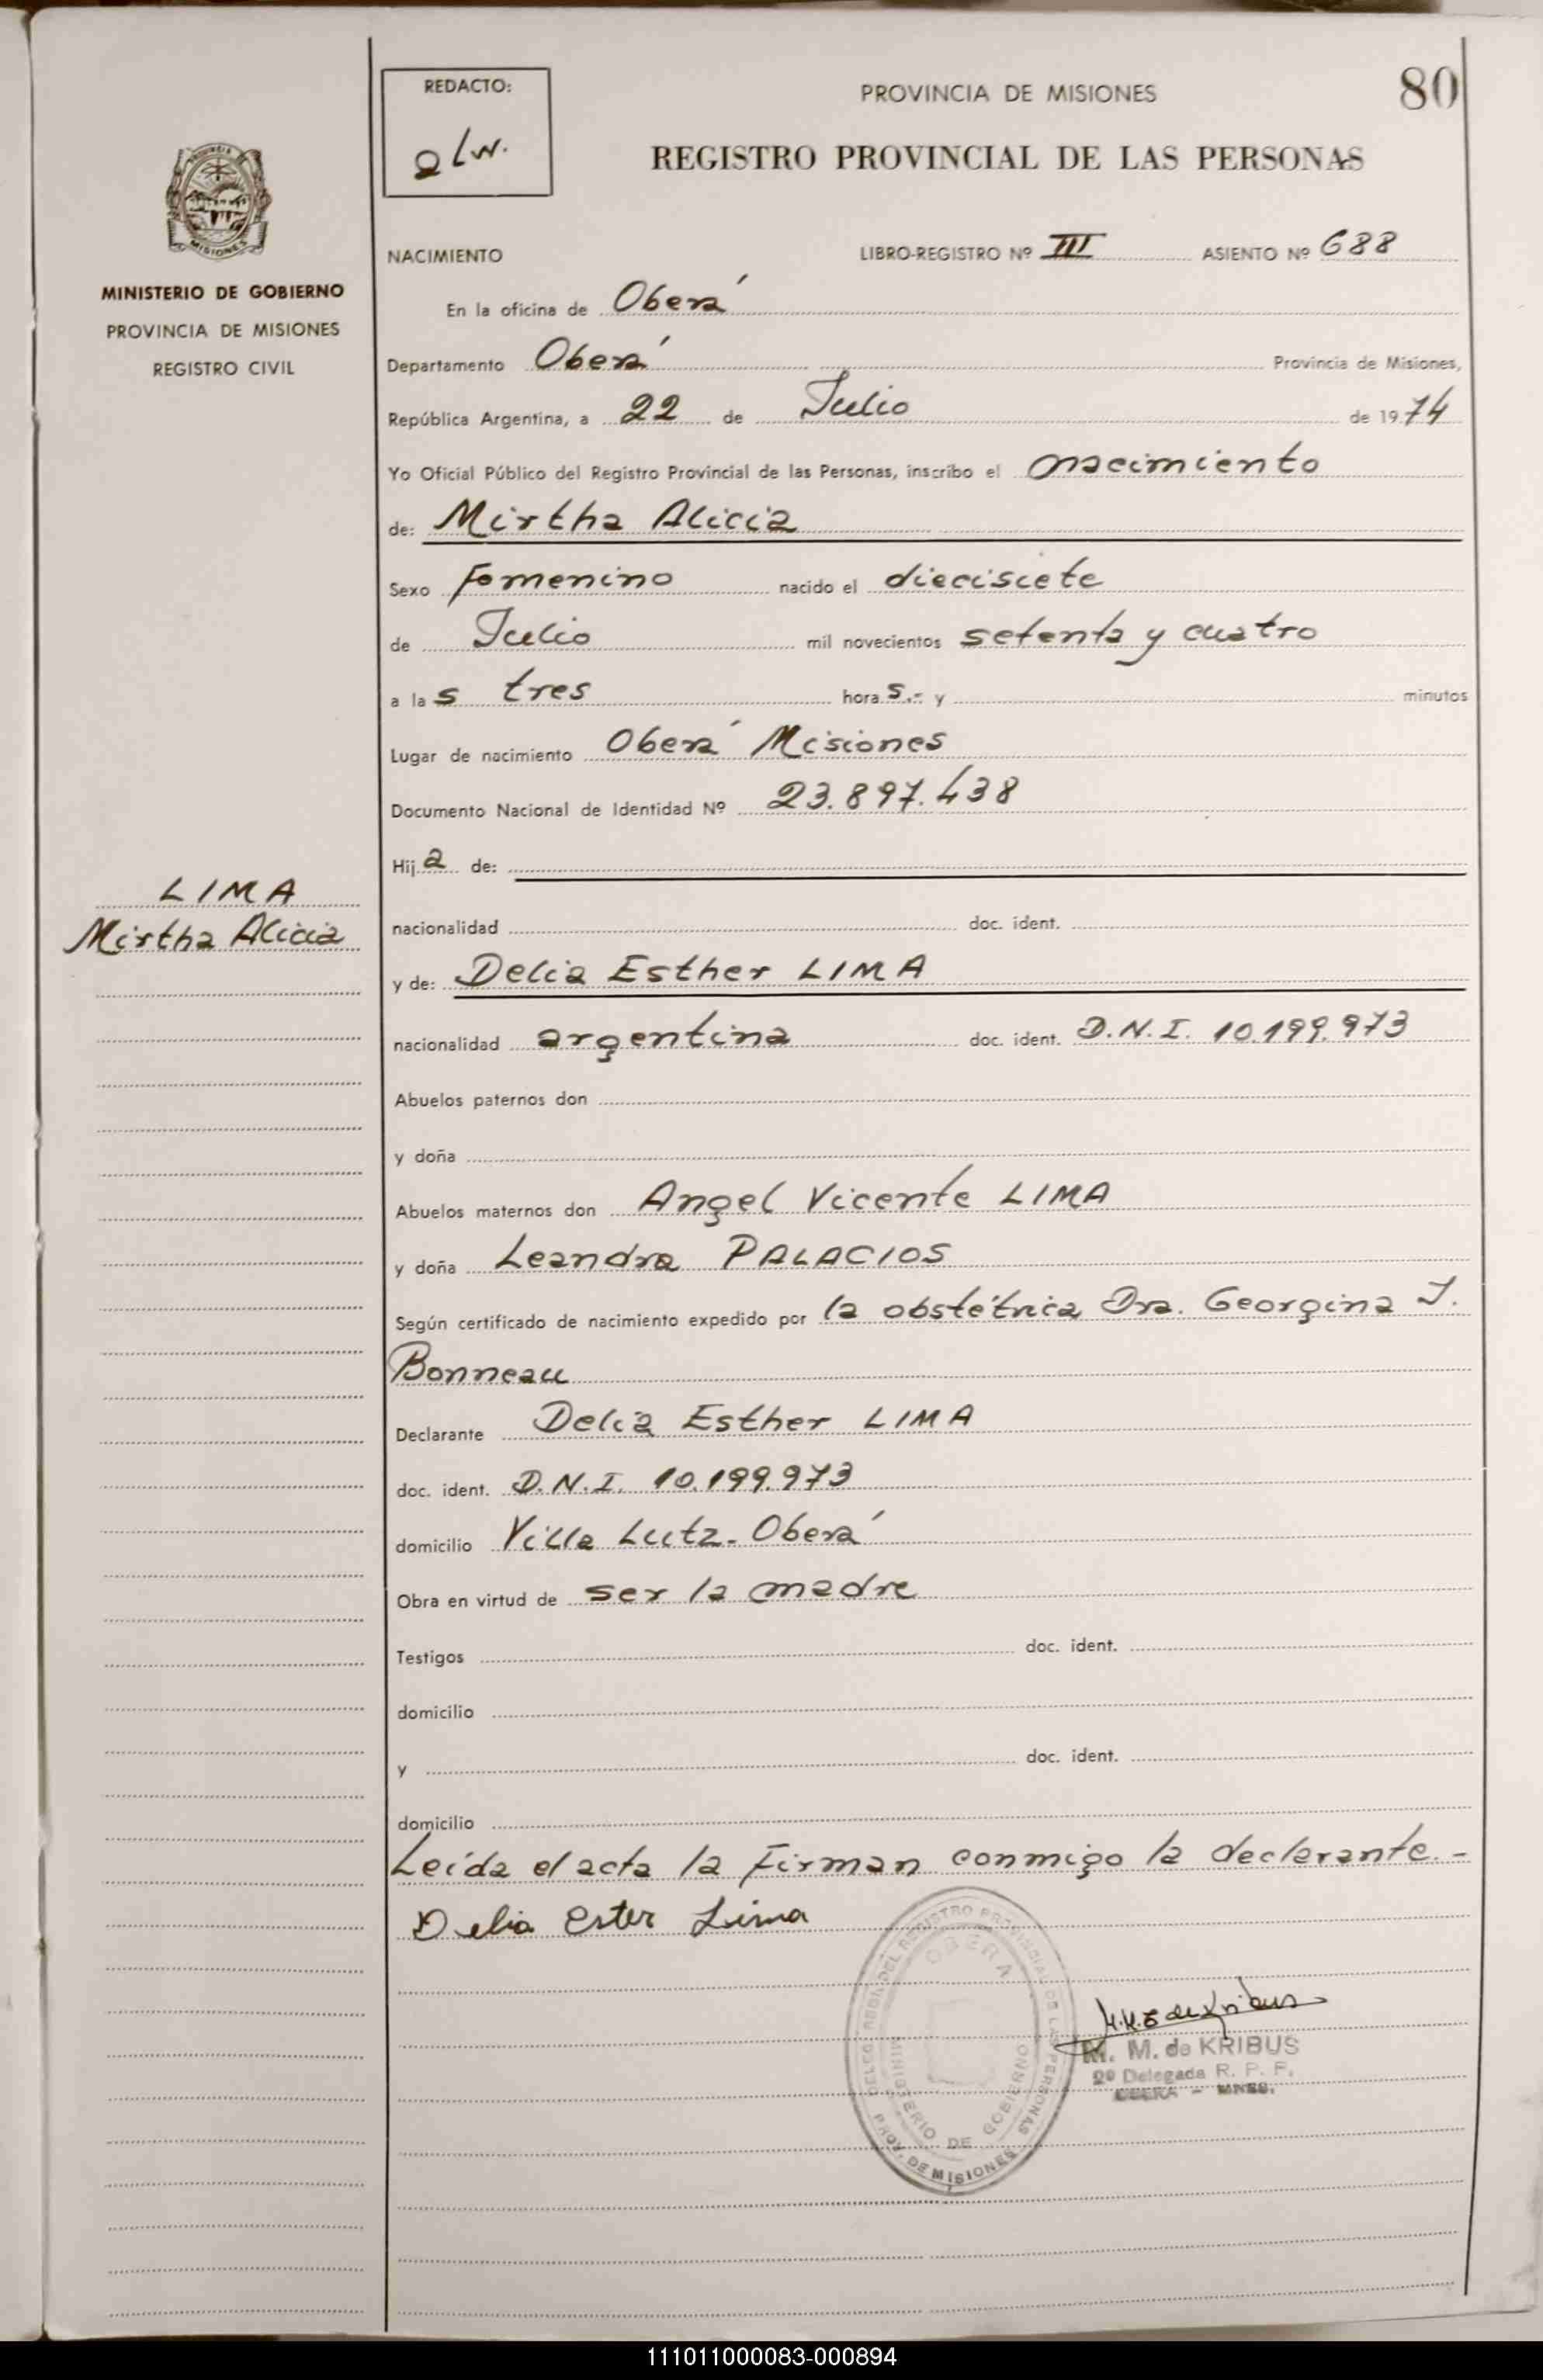 REDACTO:
alw.
PROVINCIA DE MISIONES
80
REGISTRO PROVINCIAL DE LAS PERSONAS
PROVINCIA DE
MISIONES
MINISTERIO DE GOBIERNO
PROVINCIA DE MISIONES
REGISTRO CIVIL
NACIMIENTO LIBRO-REGISTRO Nº III ASIENTO Nº 688
En la oficina de Oberá
Departamento Oberá Provincia de Misiones,
República Argentina, a 22 de Julio de 1974
Yo Oficial Público del Registro Provincial de las Personas, inscribo el nacimiento
de: Mirtha Alicia
Sexo Femenino nacido el diecisiete
de Julio mil novecientos setenta y cuatro
a las tres horas.- y minutos
Lugar de nacimiento Oberá Misiones
Documento Nacional de Identidad Nº 23.897.438
Hija de:
LIMA
Mirtha Alicia
nacionalidad doc. ident.
y de: Delia Esther LIMA
nacionalidad argentina doc. ident. D.N.I. 10.199.973
Abuelos paternos don
y doña
Abuelos maternos don Angel Vicente LIMA
y doña Leandra PALACIOS
Según certificado de nacimiento expedido por la obstétrica Dra. Georgina J.
Bonneau
Declarante Delia Esther LIMA
doc. ident. D.N.I. 10.199.973
domicilio Villa Lutz- Oberá
Obra en virtud de ser la madre
Testigos doc. ident.
domicilio
y doc. ident.
domicilio
Leída el acta la Firman conmigo la declarante.-
Delia Ester Lima
DELEG. DEL REGISTRO PROVINCIAL DE LAS PERSONAS
OBERA
MINISTERIO DE GOBIERNO
PROV. DE MISIONES
M. M. de KRIBUS
2º Delegada R. P. P.
OBERA - MNES.
111011000083-000894